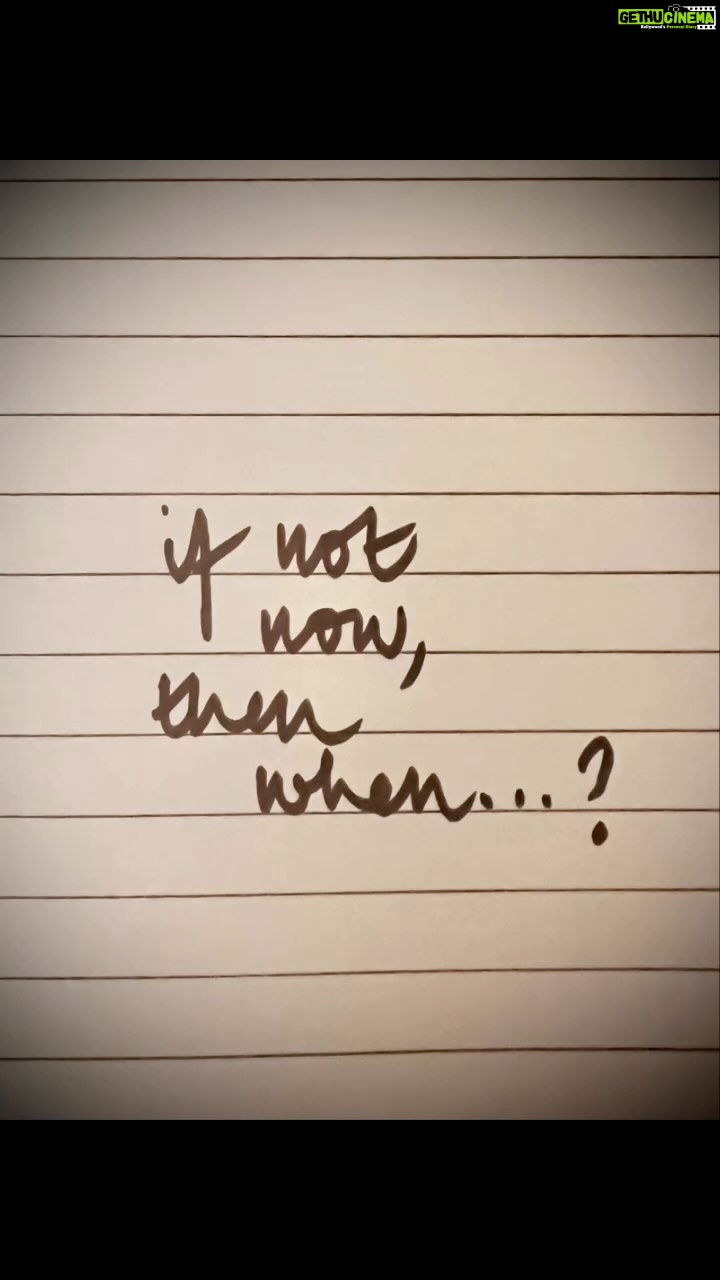 GETHUCINEMA
Kollywood's Personal Diary
if not
now,
then
when...?